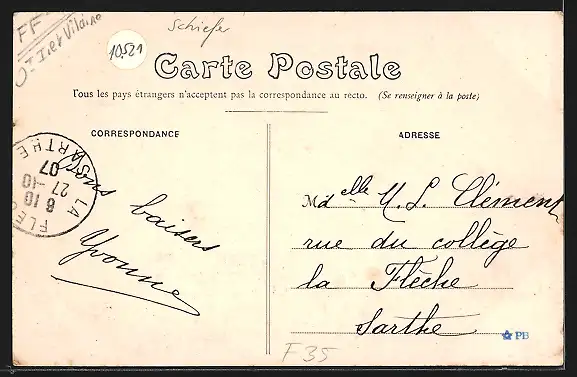 FF
I et Vilaine
10.521
Schiefer
Carte Postale
Tous les pays étrangers n'acceptent pas la correspondance au recto. (Se renseigner à la poste)
CORRESPONDANCE
ADRESSE
LA FLÈCHE SARTHE
8 10
27 -10
07
Bons baisers
Yvonne
Melle M. L. Clément
rue du collège
la Flèche
Sarthe
PB
F 35